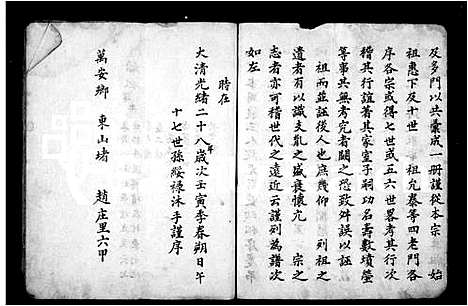 及多門以共彙成一冊謹從本宗　始
祖惠下及十世　祖允泰等四老門各
序各宗或得七世或五六世畧考其行次
稽其行誼著其家室子嗣功名壽數墳塋
等事其無考究者闕之恐致舛誤以誣
祖而並誣後人也庶幾仰　列祖之
遺者有以識支亂之盛衰懷亢　宗之
志者亦可稽世代之遠近云謹列為譜次
如左
時在
大清光緒二十八年歲次壬寅季春朔日午
十七世孫綏祿沐手謹序
萬安鄉　東山堵　趙庄里六甲